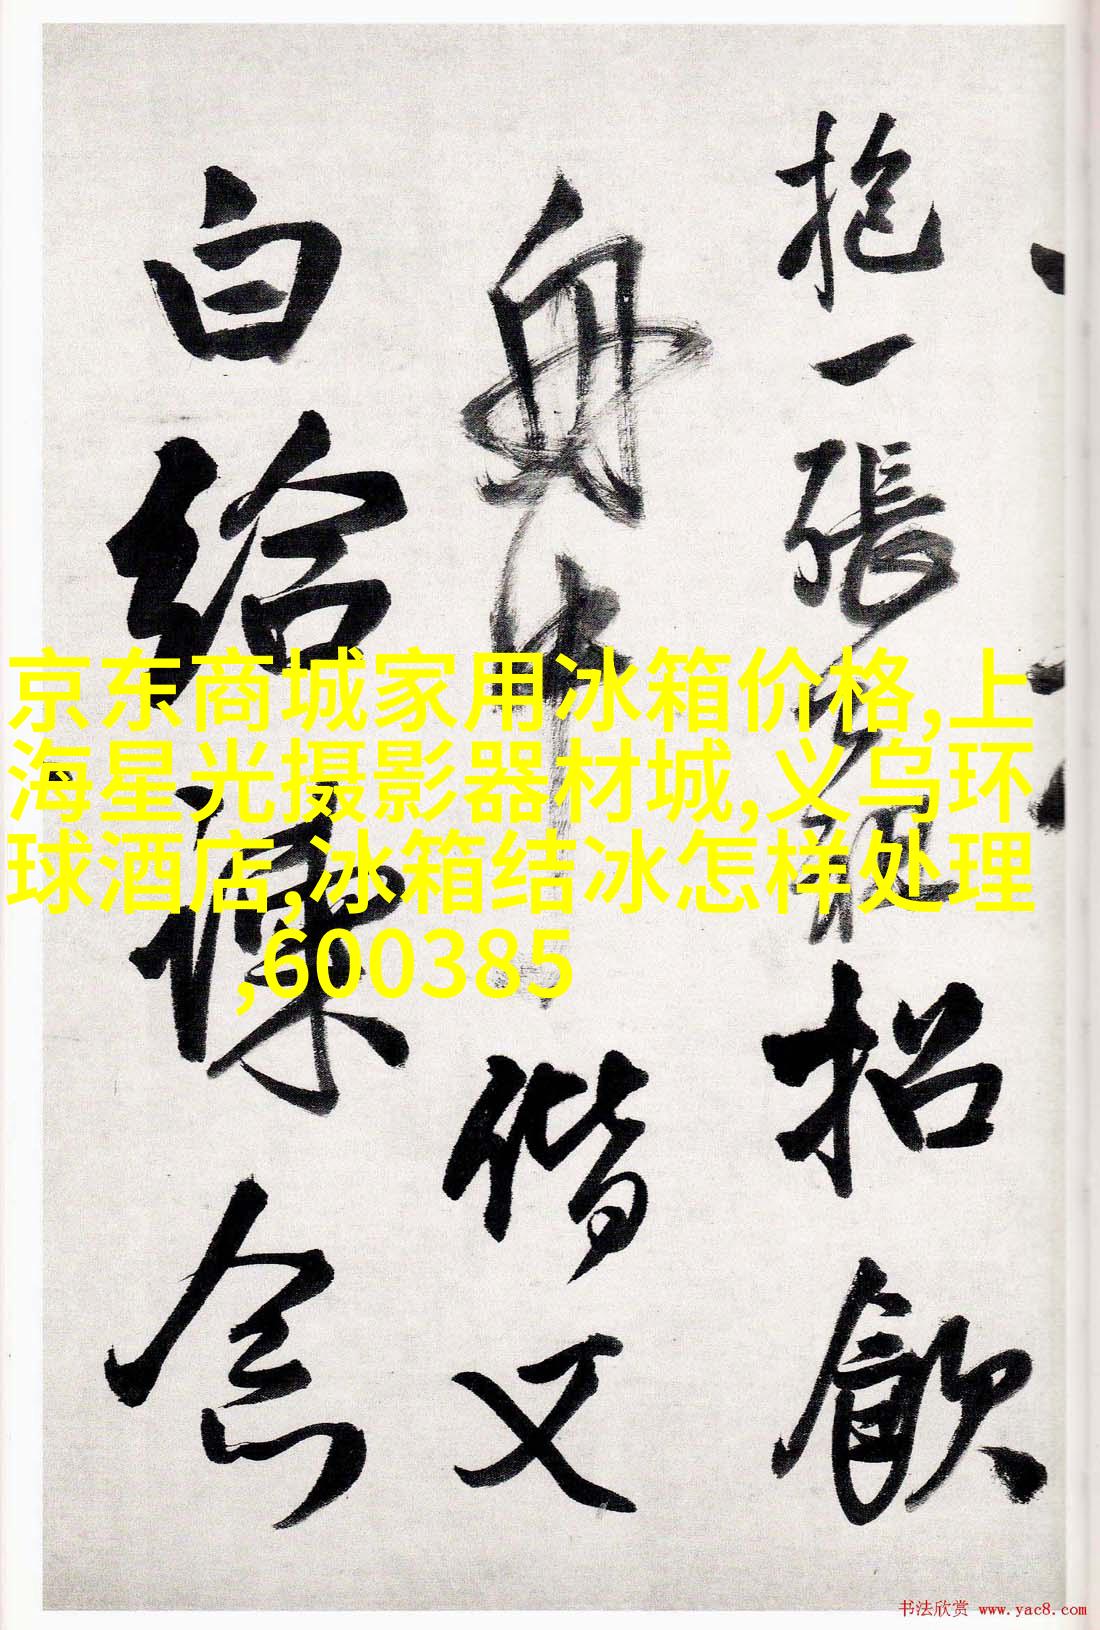 抱一張君視招飲
舟中偕又
白給諫念
京东商城家用冰箱价格,上
海星光摄影器材城,义乌环
球酒店,冰箱结冰怎样处理
,600385
书法欣赏 www.yac8.com